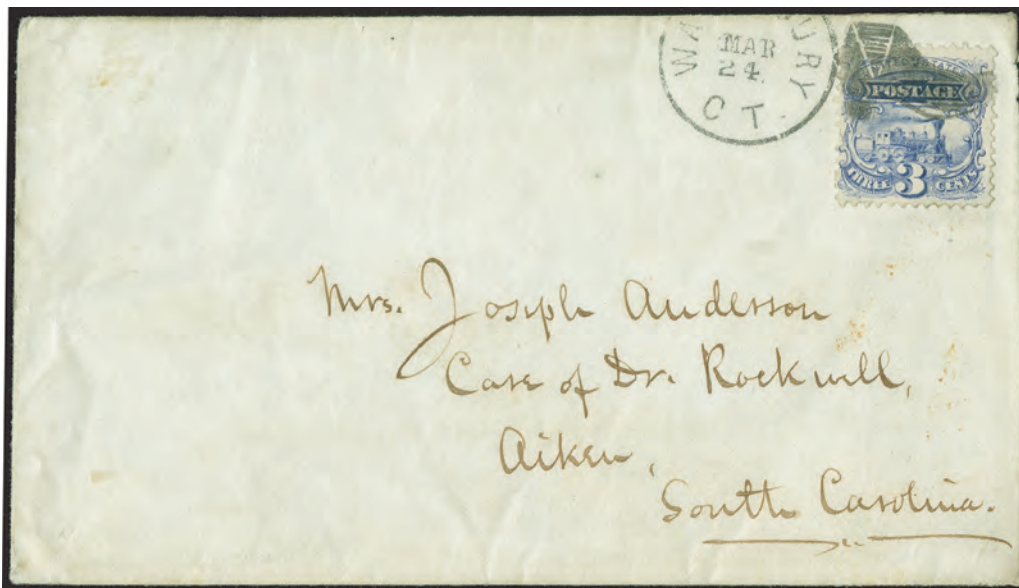 WA URY
MAR
24
CT.
POSTAGE
THREE 3 CENTS
Mrs. Joseph Anderson
Care of Dr. Rockwell,
Aiken,
South Carolina.